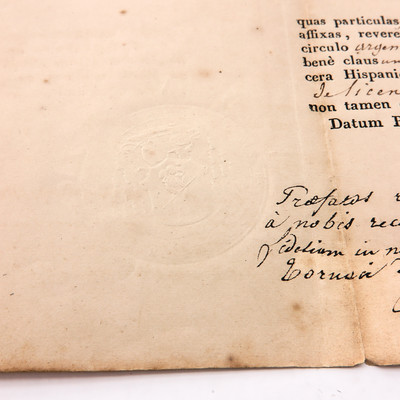 quas particulas
affixas, revere
circulo argen
benè claus un
cera Hispani
de licen
non tamen
Datum
Præfatas
à nobis rec
fidelium in n